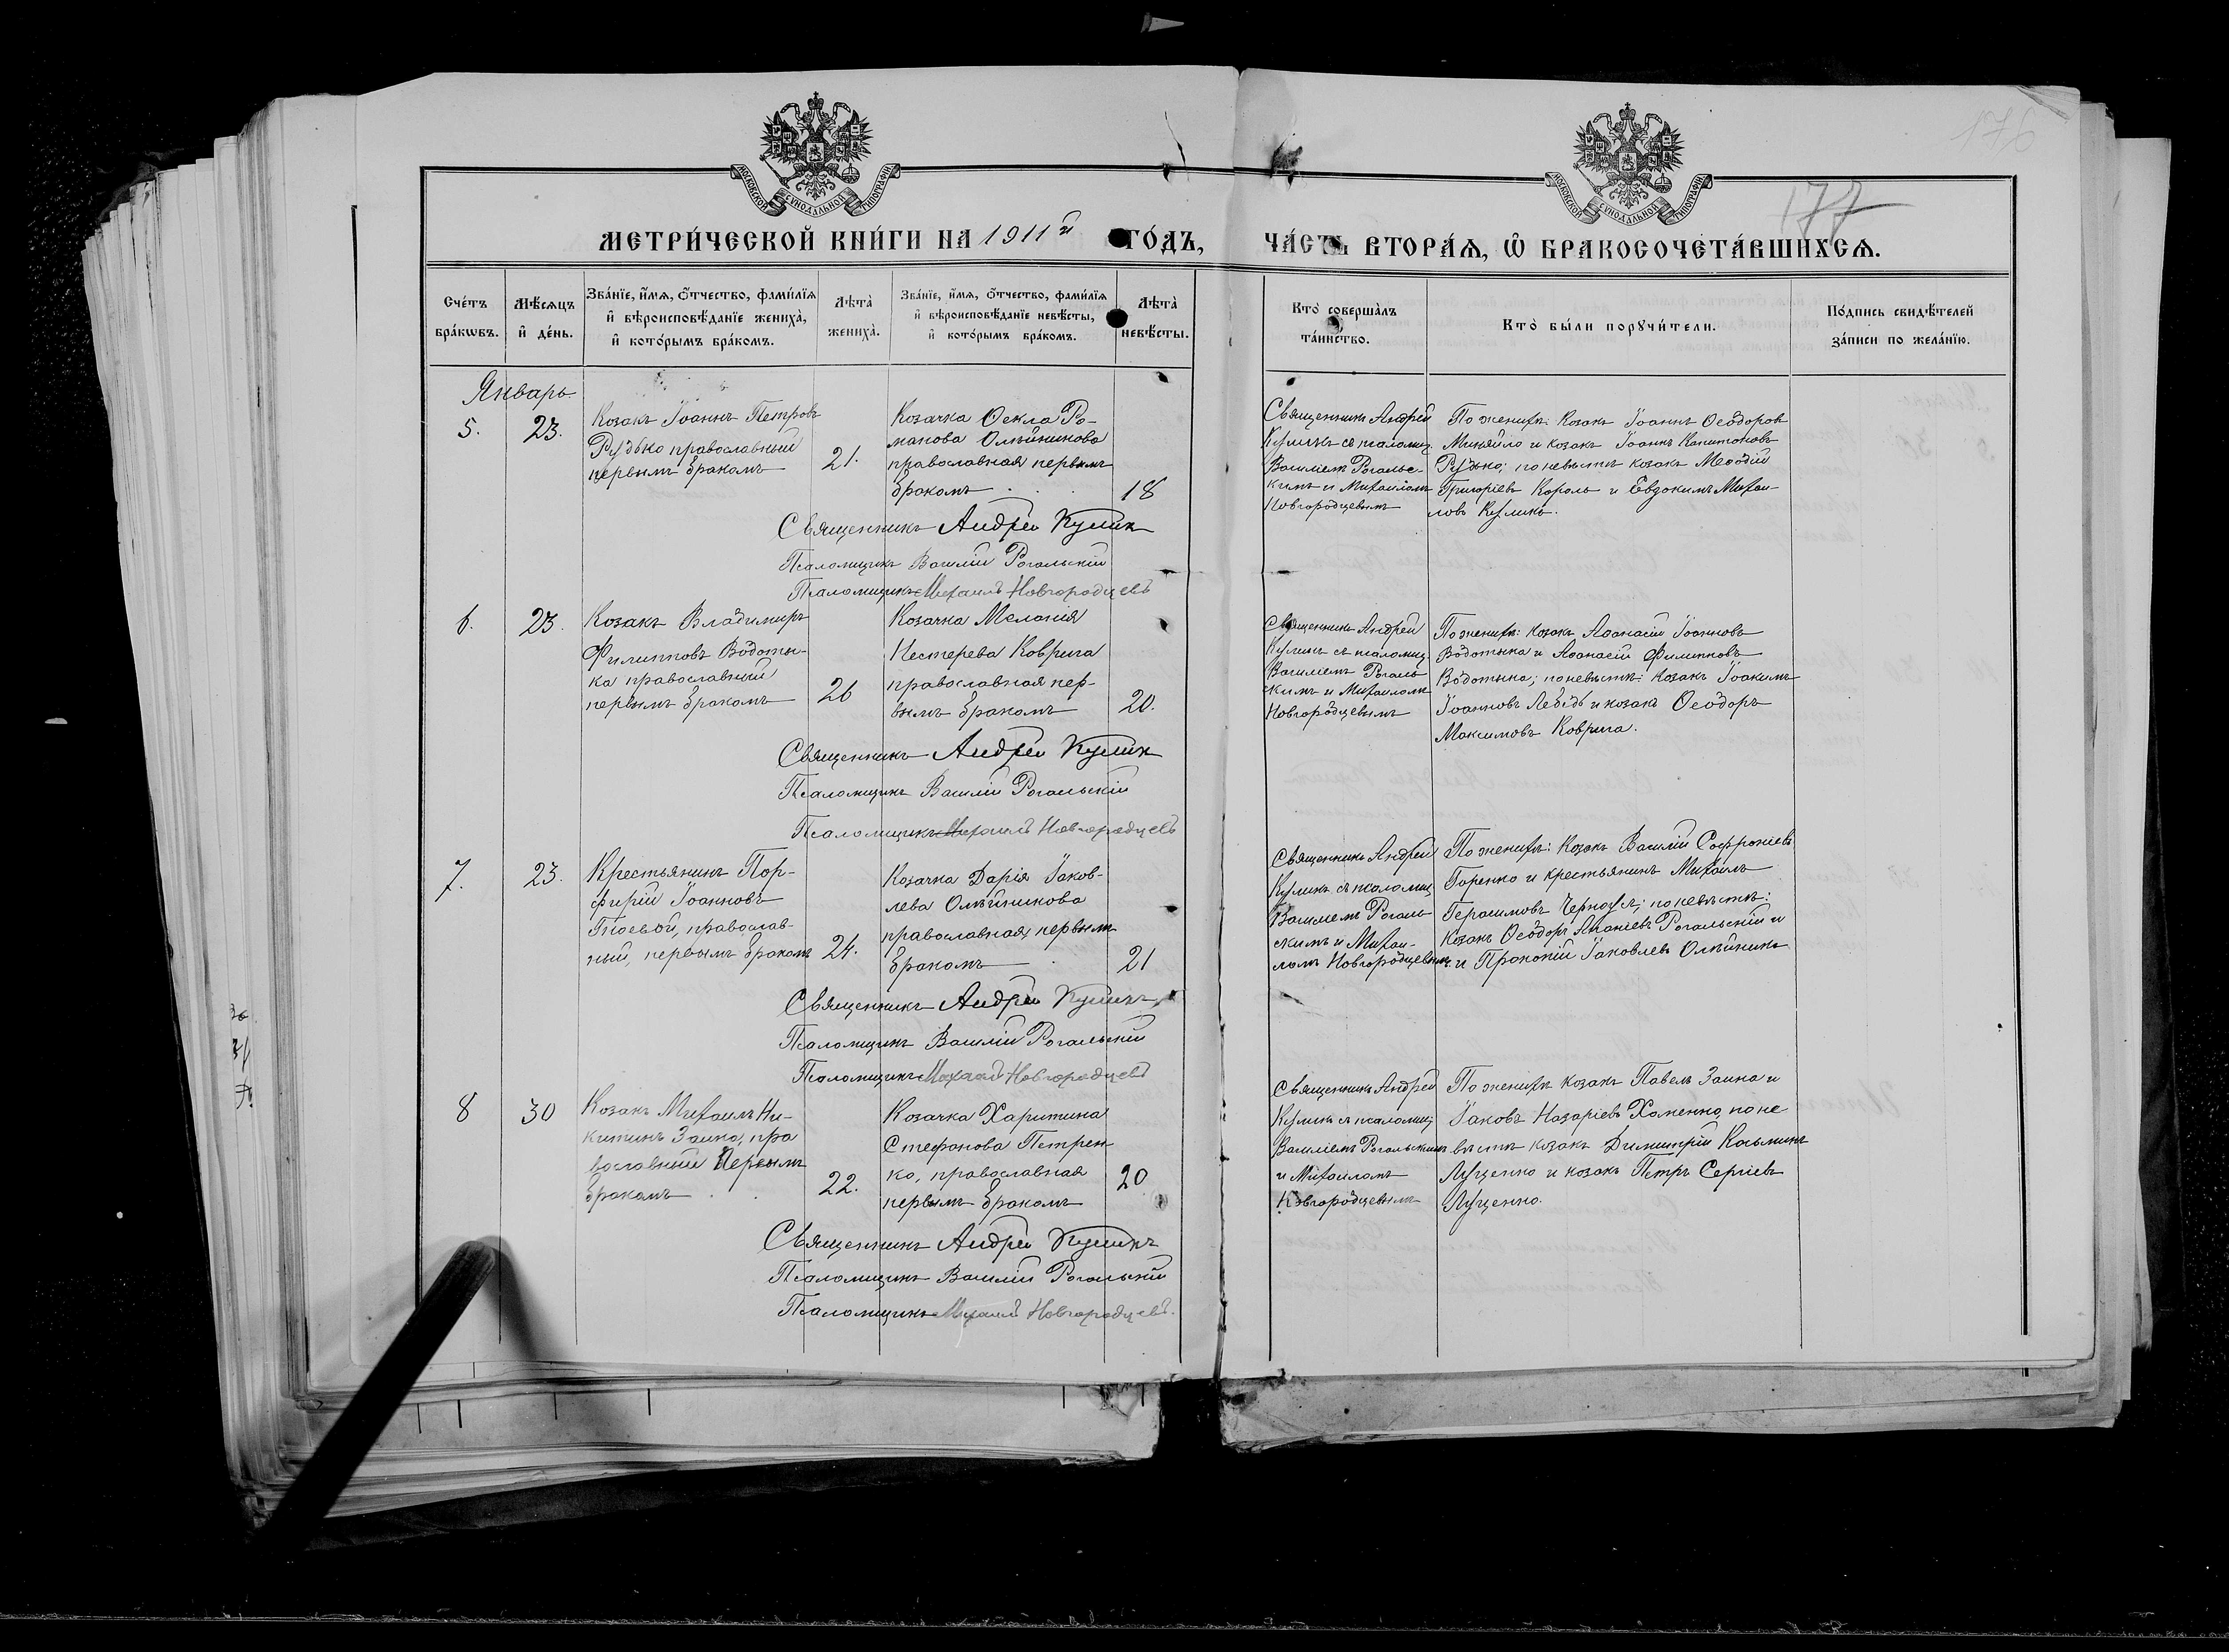 176
177
МОСКОВСКОЙ СѴНОДАЛЬНОЙ ТИПОГРАФІИ
МОСКОВСКОЙ СѴНОДАЛЬНОЙ ТИПОГРАФІИ
МЕТРИ́ЧЕСКОЙ КНИ́ГИ НА 1911й ГО́ДЪ, ЧА́СТЬ ВТОРА́Я, Ѿ БРАКОСОЧЕТА́ВШИХСЯ.
Сче́тъ бра́кωвъ.
Мѣ́сяцъ и҆ де́нь.
Зва́нїе, и҆́мя, ѻ҆́тчество, фамѝлїя
и҆ вѣроисповѣ́данїе женихà,
и҆ кото́рымъ бра́комъ.
Лѣтà женихà.
Зва́нїе, и҆́мя, ѻ҆́тчество, фамѝлїя
и҆ вѣроисповѣ́данїе невѣ́сты,
и҆ кото́рымъ бра́комъ.
Лѣтà невѣ́сты.
Ктò соверша́лъ
та́инство.
Ктò бы́ли порꙋчи́тели.
По́дпись свидѣ́телей
за́писи по жела́нїю.
Январь
5.
23.
Козакъ Іоаннъ Петровъ
Рудько православный
первымъ бракомъ
21.
Козачка Ѳекла Ро-
манова Олѣйникова
православная первымъ
бракомъ
18
Священникъ Андрей
Куликъ съ псаломщ.
Василіемъ Рогальс-
кимъ и Михаиломъ
Новгородцевымъ
По женихѣ: козакъ Іоаннъ Ѳеодоровъ
Миняйло и козакъ Іоаннъ Капитоновъ
Рудько; по невѣстѣ козакъ Меѳодій
Григоріевъ Король и Евдокимъ Михаи-
ловъ Куликъ.
Священникъ Андрей Кулик
Псаломщикъ Василій Рогальскій
Псаломщикъ Михаилъ Новгородцевъ
6.
23.
Козакъ Владимиръ
Филипповъ Водоты-
ка православный
первымъ бракомъ
26
Козачка Меланія
Нестерева Коврига
православная пер-
вымъ бракомъ
20.
Священникъ Андрей
Куликъ съ псаломщ.
Василіемъ Рогаль
скимъ и Михаиломъ
Новгородцевымъ
По женихѣ: козакъ Аѳанасій Іоанновъ
Водотыка и Аѳанасій Филипповъ
Водотыка; по невѣстѣ: козакъ Іоакимъ
Іоанновъ Лебедь и козакъ Ѳеодоръ
Максимовъ Коврига.
Священникъ Андрей Кулик
Псаломщикъ Василій Рогальскій
Псаломщикъ Михаилъ Новгородцевъ
7.
23.
Крестьянинъ Пор-
фирій Іоанновъ
православ-
ный, первымъ бракомъ
24.
Козачка Дарія Іаков-
лева Олѣйникова
православная, первымъ
бракомъ
21
Священникъ Андрей
Куликъ съ псаломщ
Василіемъ Рогаль
скимъ и Михаи-
ломъ Новгородцевымъ.
По женихѣ: козакъ Василій Софроніевъ
Горенко и крестьянинъ Михаилъ
Герасимовъ по невѣстѣ:
козакъ Ѳеодоръ Рогальскій и
и Прокопій Іаковлевъ Олѣйникъ
Священникъ Андрей Куликъ
Псаломщикъ Василій Рогальскій
Псаломщикъ Михаилъ Новгородцевъ
8
30
Козакъ Михаилъ Ни-
китинъ Заика, пра
вославный Первымъ
бракомъ
22.
Козачка Харитина
Стефанова Петрен
ко, православная
первымъ бракомъ
20
Священникъ Андрей
Куликъ съ псаломщ.
Василіемъ Рогальскимъ
и Михаиломъ
Новгородцевымъ
По женихѣ козакъ Павелъ Заика и
Іаковъ Назаріевъ Хоменко, по не
вѣстѣ козакъ Димитрій Косьминъ
Луценко и козакъ Петръ Сергіевъ
Луценко.
Священникъ Андрей Куликъ
Псаломщикъ Василій Рогальскій
Псаломщикъ Михаилъ Новгородцевъ.